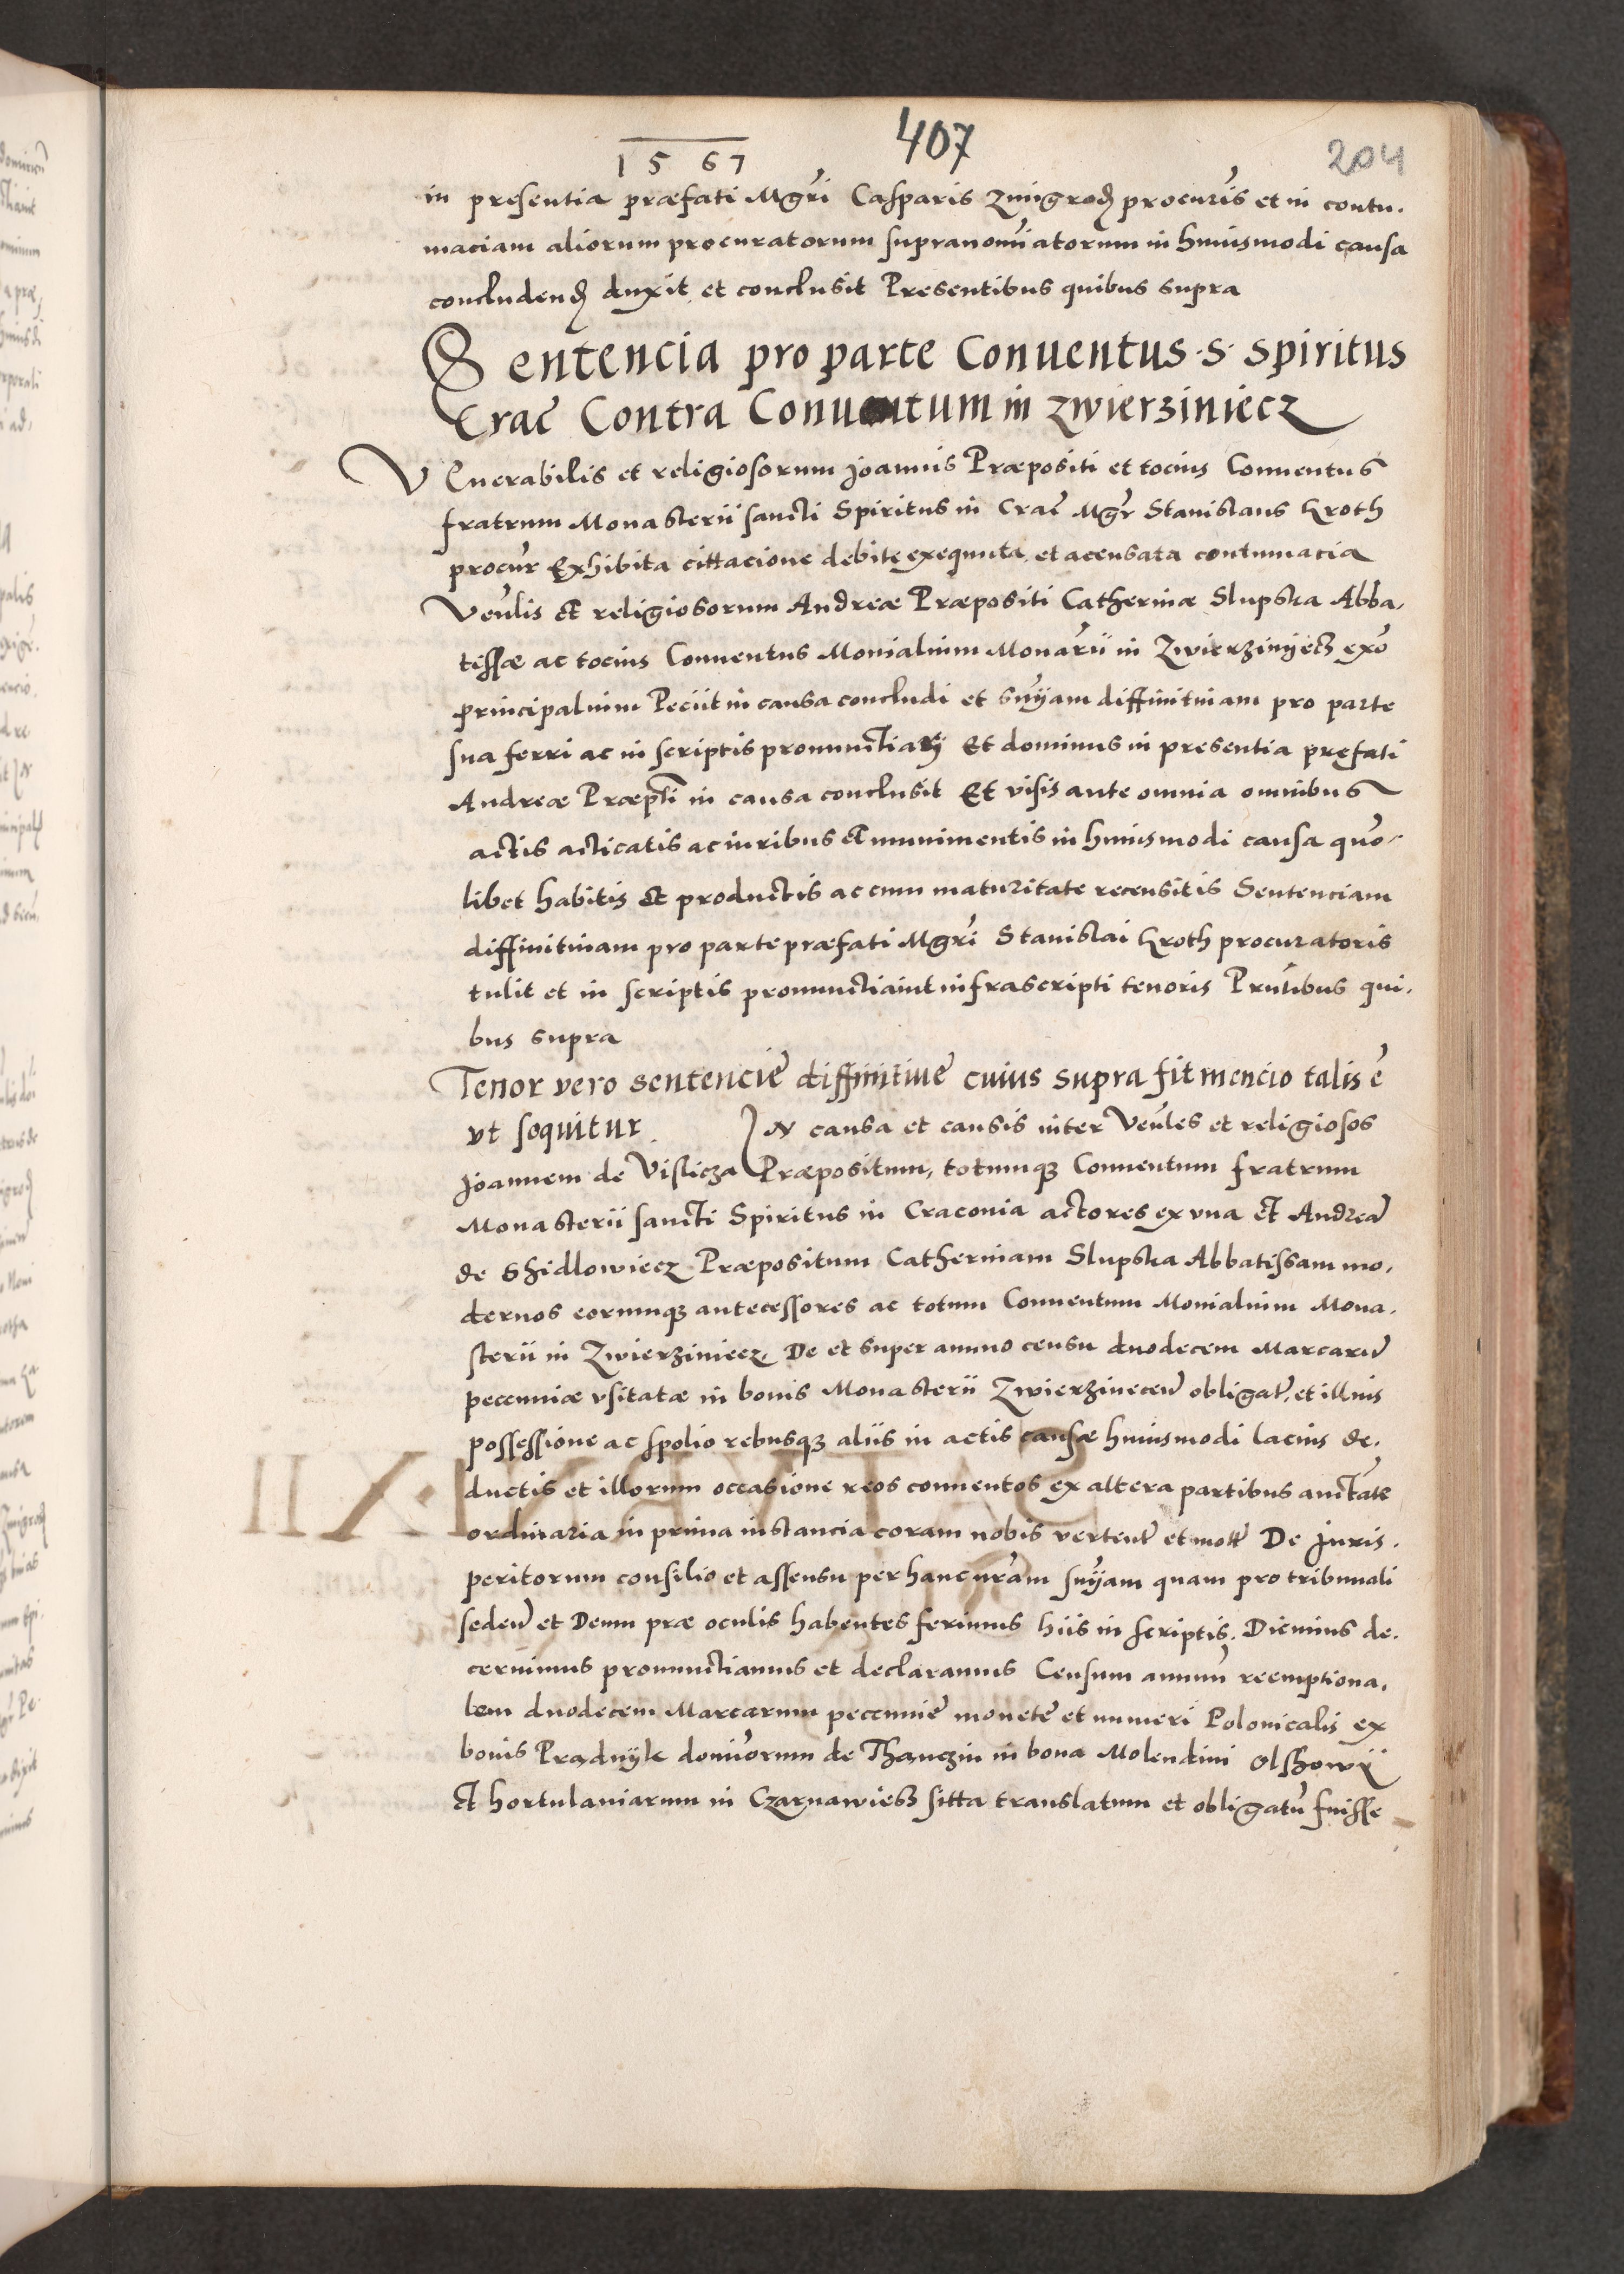 407
204
1567
in presentia præfati Mgri Casparis Zmigrod procuris et in contu-
maciam aliorum procuratorum supranominatorum in huiusmodi causa
concludend duxit et conclusit Presentibus quibus supra
Sentencia pro parte Conuentus .S. Spiritus
Crac Contra Conuentum in Zwierziniecz
VEnerabilis et religiosorum Joannis Præpositi et tocius Conuentus
fratrum Monasterii sancti Spiritus in Crac Mgr Stanislaus Kroth
procur Exhibita cittacione debite exequuta et acensata contumacia
Venlis et religiosorum Andreæ Præpositi Catherinæ Slupska Abba-
tissæ ac tocius Conuentus Monialium Monarii in Zwierzinyecz exo
principalium Peciit in causa concludi et sniam diffinitiuam pro parte
sua ferri ac in scriptis pronunctiari Et dominus in presentia prefati
Andreæ Præpti in causa conclusit Et visis ante omnia omnibus
actis acticatis ac iuribus et munimentis in huiusmodi causa quo-
libet habitis et productis ac cum maturitate recensitis Sentenciam
diffinitiuam pro parte præfati Mgri Stanislai Kroth procuratoris
tulit et in scriptis pronunctiauit infrascripti tenoris Prntibus qui-
bus supra
Tenor vero sentencie diffinitiue cuius supra fit mencio talis e
vt sequitur IN causa et causis inter Venles et religiosos
Joannem de Vislicza Præpositum, totumq3 Conuentum fratrum
Monasterii sancti Spiritus in Craconia actores ex vna et Andrea
de Shidlowiecz Præpositum Catherinam Slupska Abbatissam mo-
dernos eorumq3 antecessores ac totum Conuentum Monialium Mona-
sterii in Zwierziniecz. De et super annuo censu duodecem Marcaru
pecenniæ vsitatæ in bonis Monasterii Zwierzinecen obligat, et illius
possessione ac spolio rebusq3 aliis in actis causæ huiusmodi lacius de-
ductis et illorum occasione reos conuentos ex altera partibus auctate
ordinaria in prima instancia coram nobis vertent et mott De Juris-
peritorum consilio et assensu per hanc nram sniam quam pro tribunali
seden et Deum præ oculis habentes ferimus hiis in scriptis. Dicimus de-
cernimus pronunctiamus et declaramus Censum annuu reemptiona-
lem duodecem Marcarum pecunnie monete et numeri Polonicalis ex
bonis Prądnyk dominorum de Thanczin in bona Molendini Olshowy
et hortulaniarum in Czarnawies3 sitta translatum et obligatu fuisse